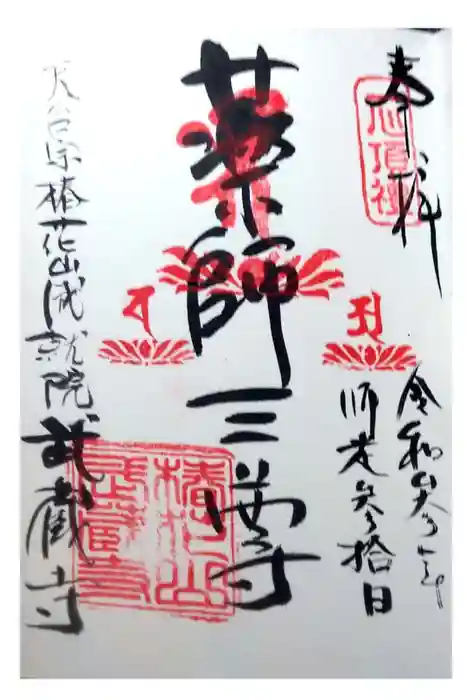 奉拝
令和参年
師走参拾日
薬師三尊
天台宗椿花山成就院武蔵寺
椿花山武蔵寺